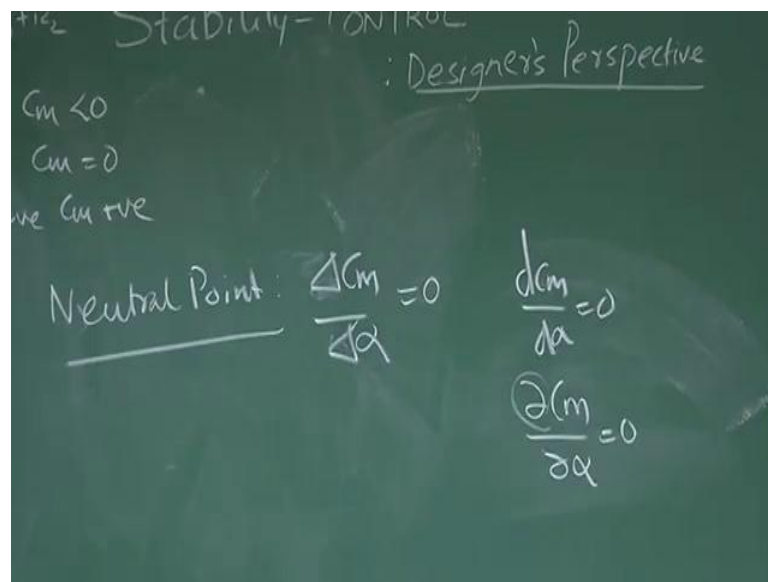 +R2 Stability - CONTROL
: Designer's Perspective
Cm <0
Cm = 0
ve Cm +ve
Neutral Point : ΔCm / Δα = 0
dCm / dα = 0
∂Cm / ∂α = 0